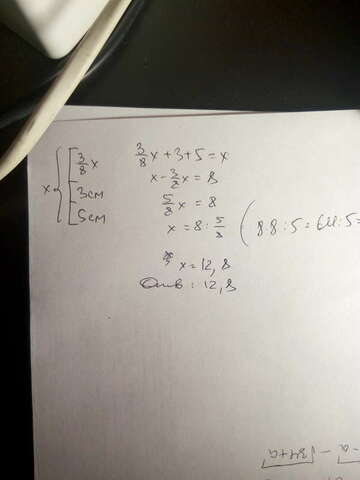 x { 3/8 x
3 см
5 см
3/8 x + 3 + 5 = x
x - 3/8 x = 8
5/8 x = 8
x = 8 : 5/8 ( 8·8 : 5 = 64 : 5 =
x = 12,8
Отв : 12,8